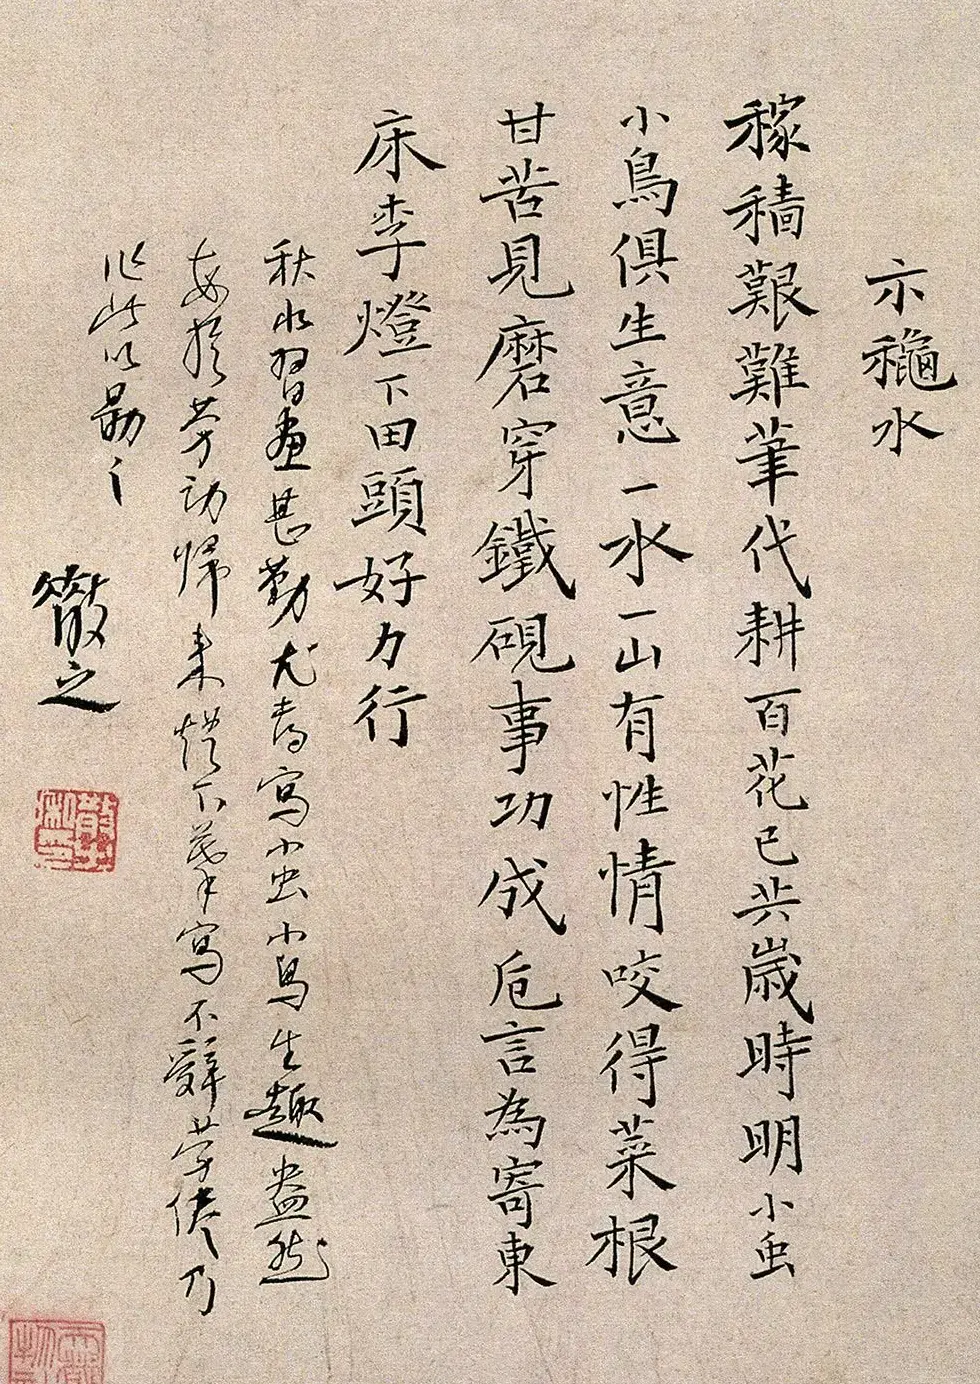 示穐水
稼穡艱難筆代耕百花已共歲時明小虫
小鳥俱生意一水一山有性情咬得菜根
甘苦見磨穿鐵硯事功成卮言為寄東
床季燈下田頭好力行
秋水習畫甚勤尤喜寫小虫小鳥生趣盎然
每於勞動歸來燈下摹寫不辭勞倦乃
作此以勖之
散之